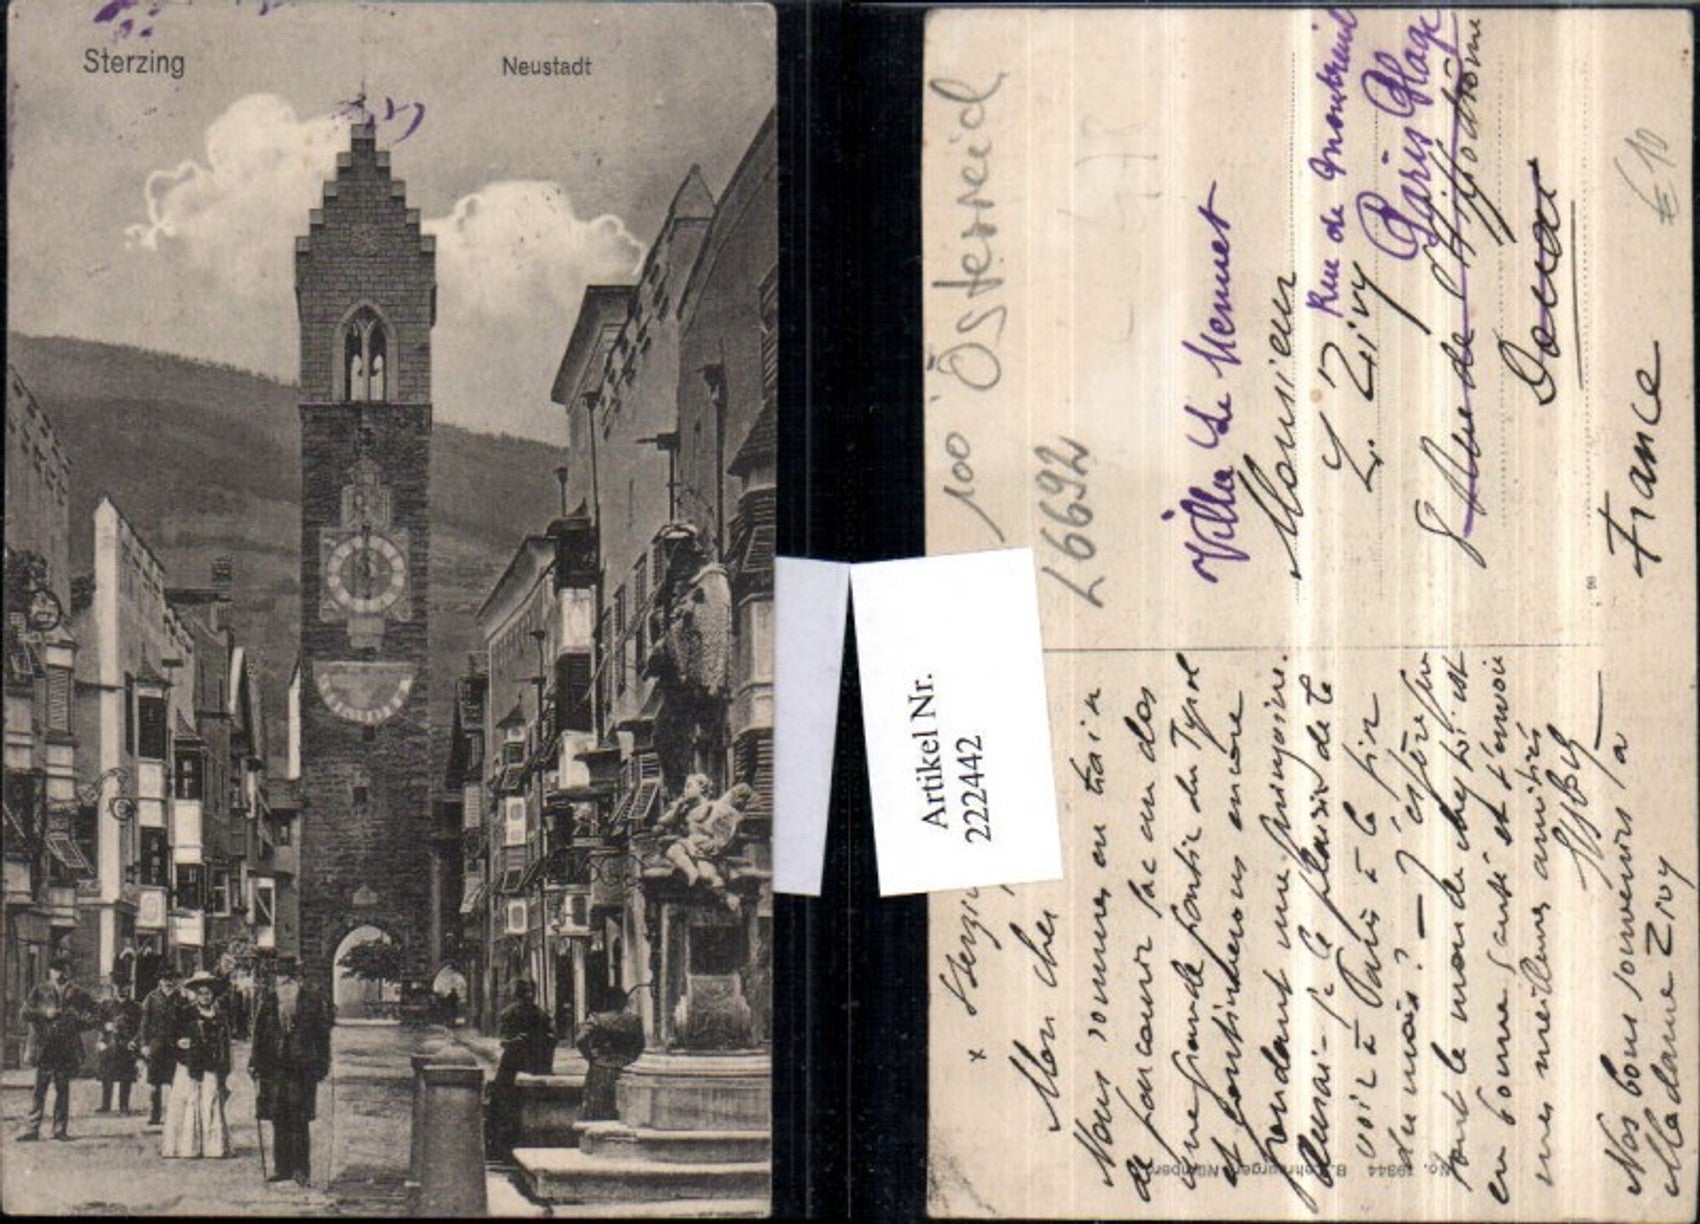 Sterzing
Neustadt
100 Österreich
L6692
Artikel Nr.
222442
€ 10
Villa Le Memet
Monsieur
L. Zivy
Rue de Montreuil
Paris Plage
8 Rue de l'Hippodrome
Douai
France
x Sterzin
Mon cher
Nous sommes en train
de parcourir sac au dos
une grande partie du Tyrol
et continuerons encore
pendant une quinzaine.
Aurai-je le plaisir de te
voir à Paris à la fin
du mois? — J'espère que
tout le monde chez toi est
en bonne santé et t'envoie
mes meilleures amitiés
Nos bons souvenirs à
Madame Zivy
No. 19344 B. Lehrburger, Nürnberg